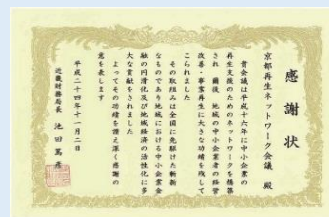 感謝状
京都再生ネットワーク会議 殿
貴会議は平成十六年に中小企業の
再生支援のためのネットワークを構築
され 爾後 地域の中小企業者の経営
改善・事業再生に大きな功績を残して
こられました
その取組みは全国に先駆けた斬新
なものであり地域における中小企業金
融の円滑化及び地域経済の活性化に多
大な貢献をされました
よってその功績を讃え深く感謝の
意を表します
平成二十四年十一月二日
近畿財務局長 池田篤彦